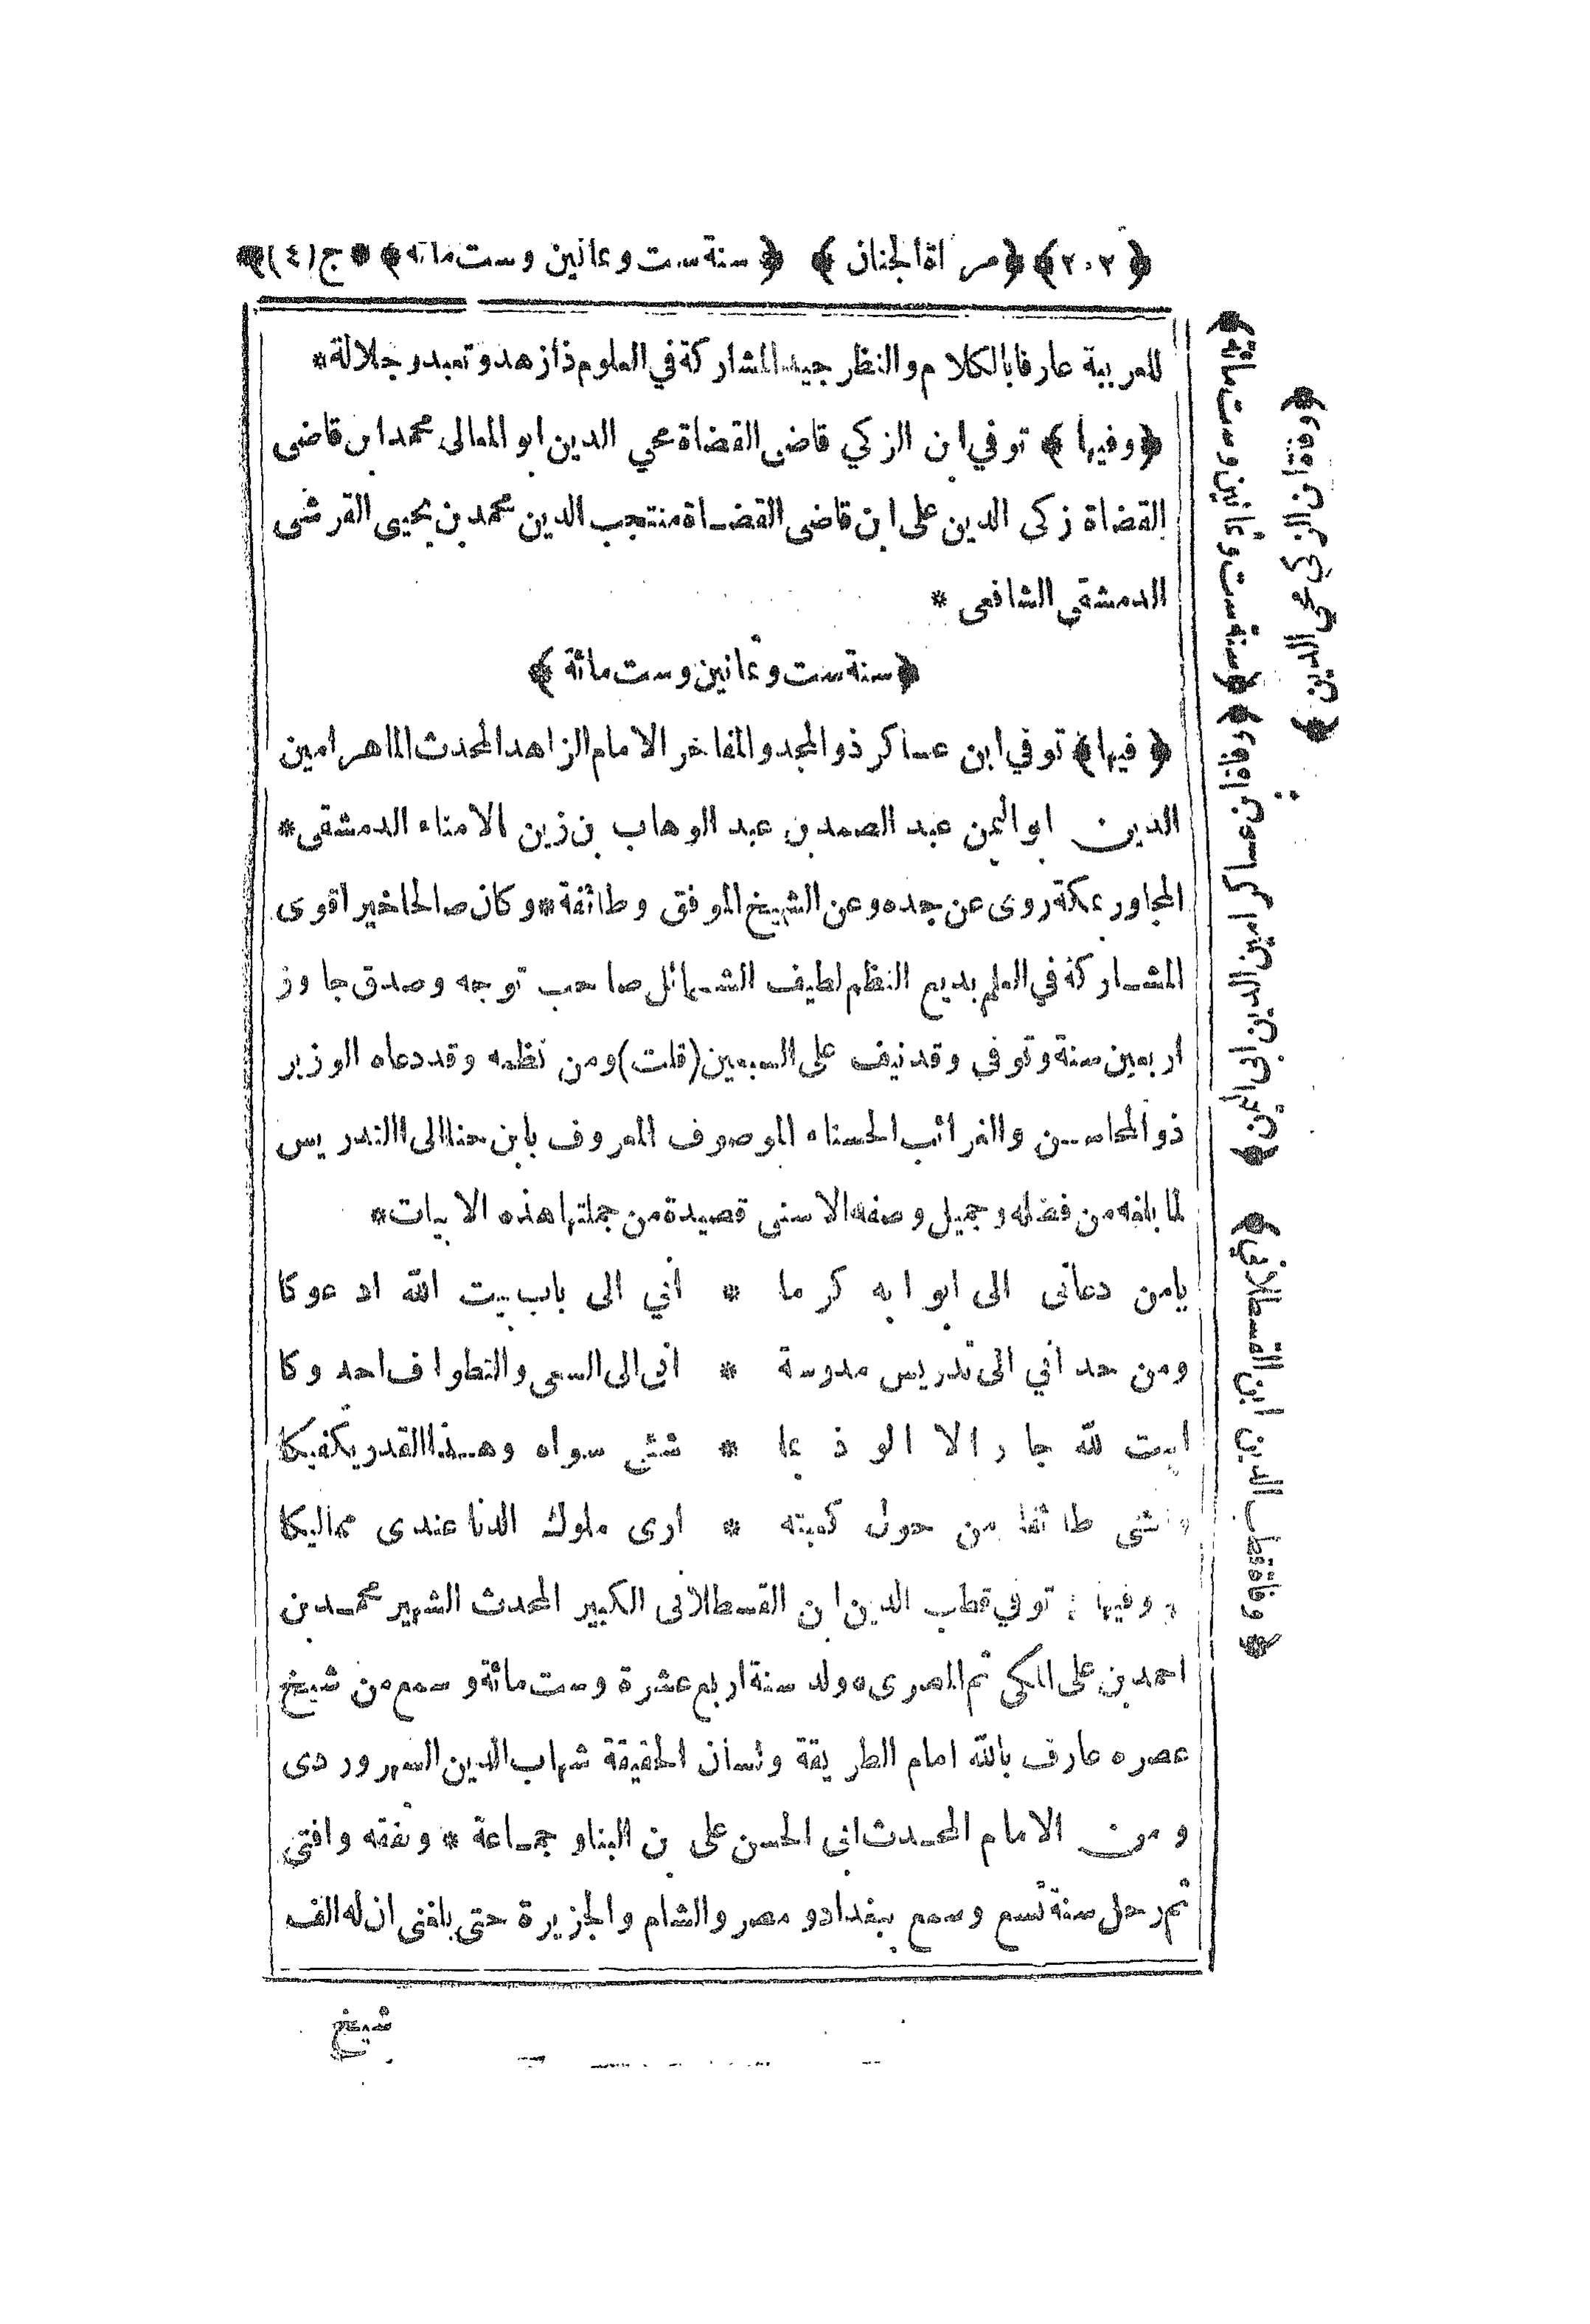 ﴿٢٠٢﴾ ﴿مرآة الجنان﴾ ﴿سنة ست وثمانين وست مائة﴾ * ج(٤)
للعربية عارفا بالكلام والنظر جيد المشاركة في العلوم ذا زهد وتعبد وجلالة *
﴿وفيها﴾ توفي ابن الزكي قاضى القضاة محي الدين ابو المعالى محمد ابن قاضى
القضاة زكى الدين على ابن قاضى القضاة منتجب الدين محمد بن يحيى القرشى
الدمشقي الشافعى *
﴿سنة ست وثمانين وست مائة﴾
﴿فيها﴾ توفي ابن عساكر ذو المجد والمفاخر الامام الزاهد المحدث الماهر امين
الدين ابو اليمن عبد الصمد بن عبد الوهاب بن زين الامناء الدمشقى *
المجاور بمكة روى عن جده وعن الشيخ الموفق وطائفة * وكان صالحا خيرا قوى
المشاركة في العلم بديع النظم لطيف الشمائل صاحب توجه وصدق جاوز
اربعين سنة وتوفي وقد نيف على السبعين (قلت) ومن نظمه وقد دعاه الوزير
ذو المحاسن والغرائب الحسناه الموصوف المعروف بابن حنا الى التدريس
لما بلغه من فضله وجميل وصفه الاسنى قصيدة من جملتها هذه الابيات *
يا من دعانى الى ابوابه كرما * أني الى باب بيت الله ادعوكا
ومن حدانى الى تدريس مدرسة * انى الى السعى والتطواف احدوكا
ابيت لله جارا لا الوذ بما * شئى سواه وهذا القدر يكفيكا
انثنى طائفا من حول كعبته * ارى ملوك الدنا عندى مماليكا
﴿وفيها﴾ توفي قطب الدين ابن القسطلانى الكبير المحدث الشهير محمد بن
احمد بن على المكى ثم المصرى ه ولد سنة اربع عشرة وست مائة وسمع من شيخ
عصره عارف بالله امام الطريقة ولسان الحقيقة شهاب الدين السهروردى
ومن الامام المحدث ابى الحسن على بن البنا وجماعة * وتفقه وافتى
ثم رحل سنة تسع وسمع ببغداد ومصر والشام والجزيرة حتى بلغنى ان له الف
شيخ
﴿وفاة ابن الزكي محي الدين﴾
﴿سنة ست وثمانين وست مائة﴾
﴿وفاة ابن عساكر امين الدين ابى اليمن﴾
﴿وفاة قطب الدين ابن القسطلاني﴾